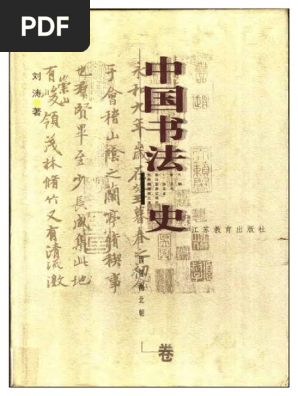 PDF
中国书法史
魏晋南北朝
卷
刘涛 著
江苏教育出版社
永和九年歲在癸丑暮春之初
于會稽山陰之蘭亭脩稧事
也羣賢畢至少長咸集此地
有崇山峻領茂林脩竹又有清流激